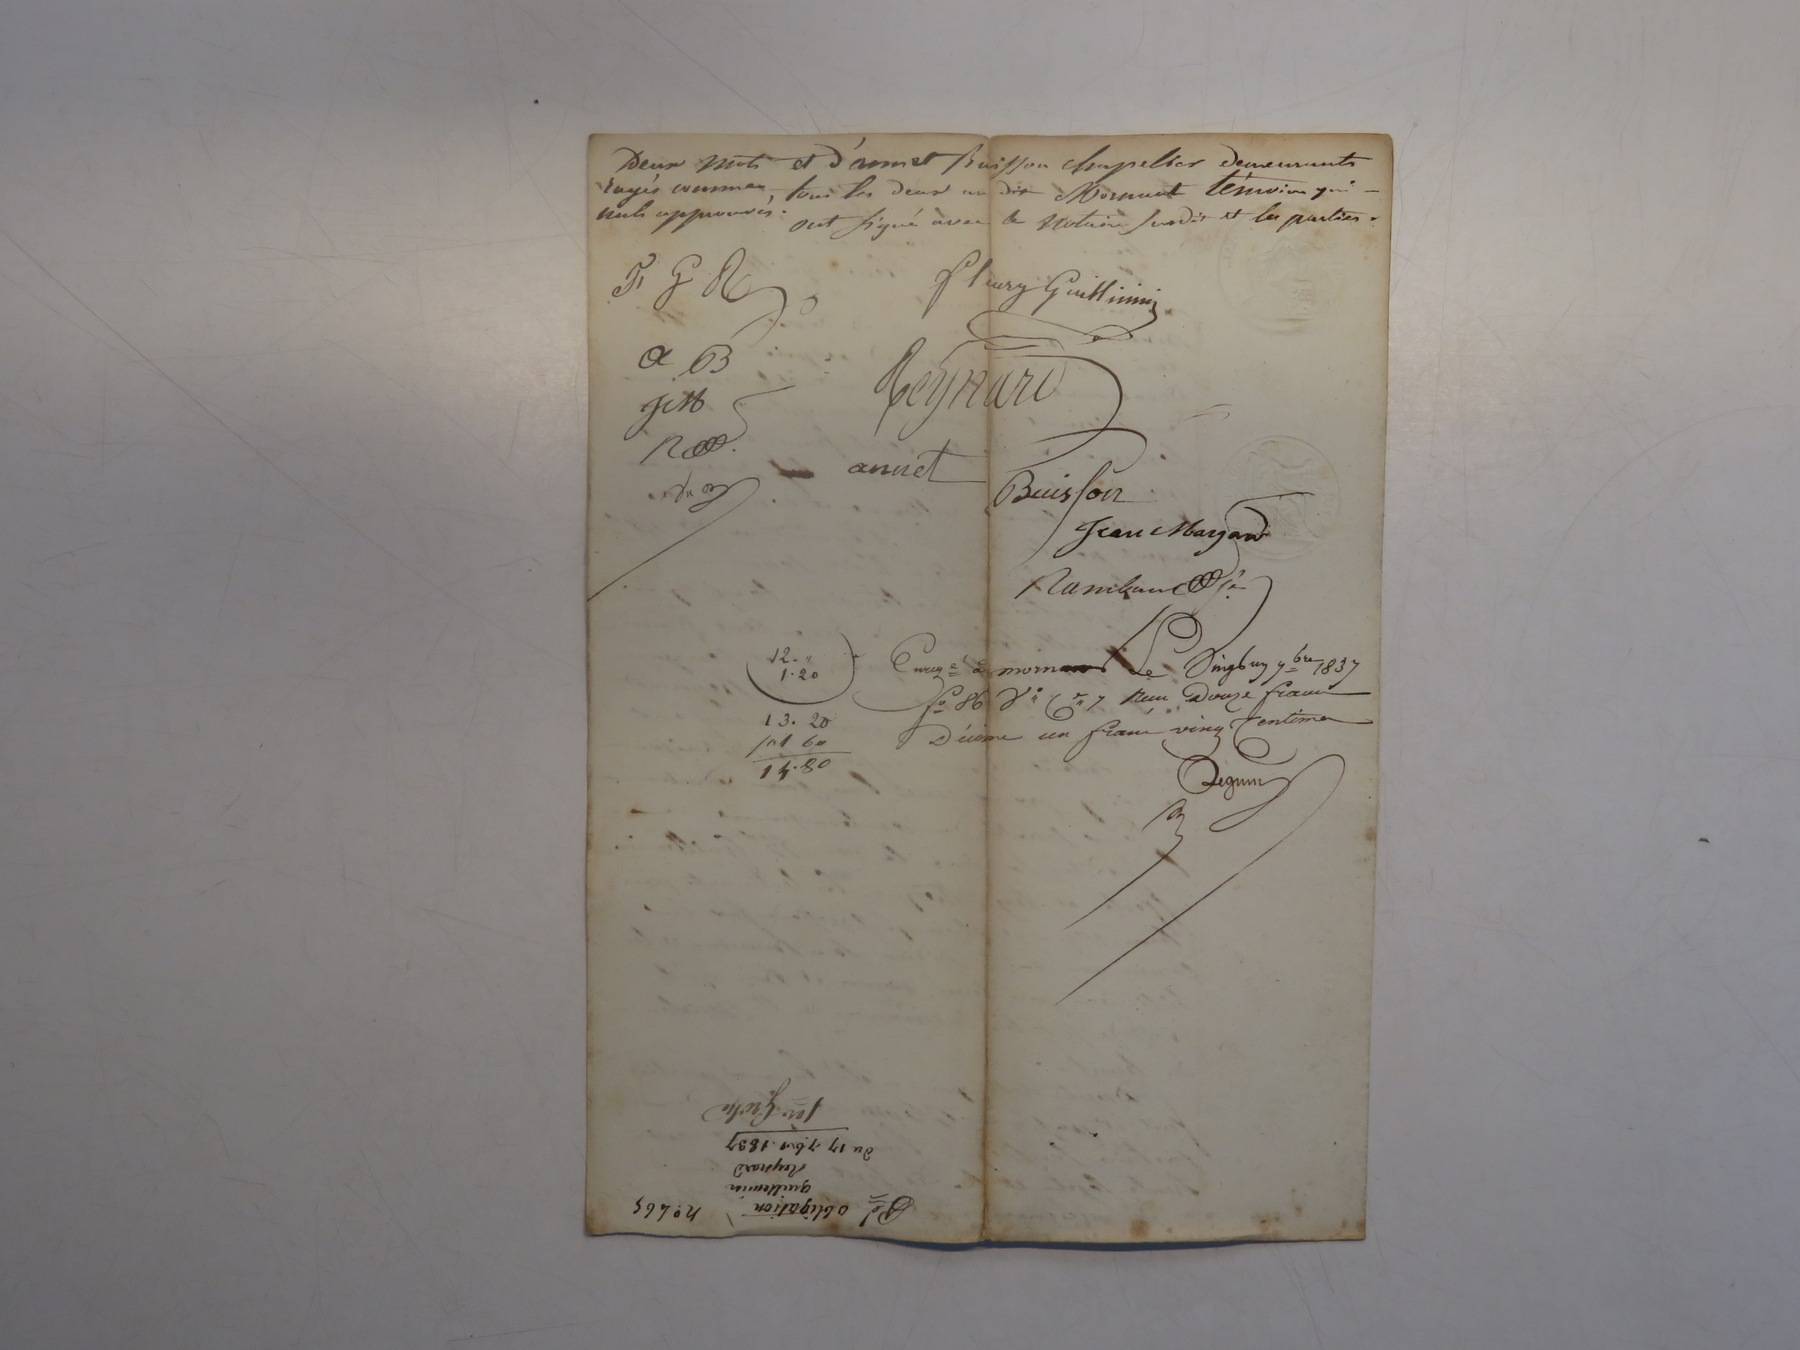 Deux mots et d'annet Buisson chapelier demeurants
rayés comme tous les deux au dit Mornant témoins qui
nuls approuvés. ont signé avec le Notaire susdit et les parties.
F G R
fleury Guillemin
a B
Reynard
J M
annet Buisson
Jean Marjard
Rambaud
12. "
1.20
Enreg à mornant Le Vingt 7bre 1837
fo 86 Vo Ce 7 Reçu Douze francs
13. 20
Décime un franc vingt Centimes
1 60
14.80
Seguin
Obligation
guillemin
Reynard
du 17 7bre 1837
1re Grosse
No 465